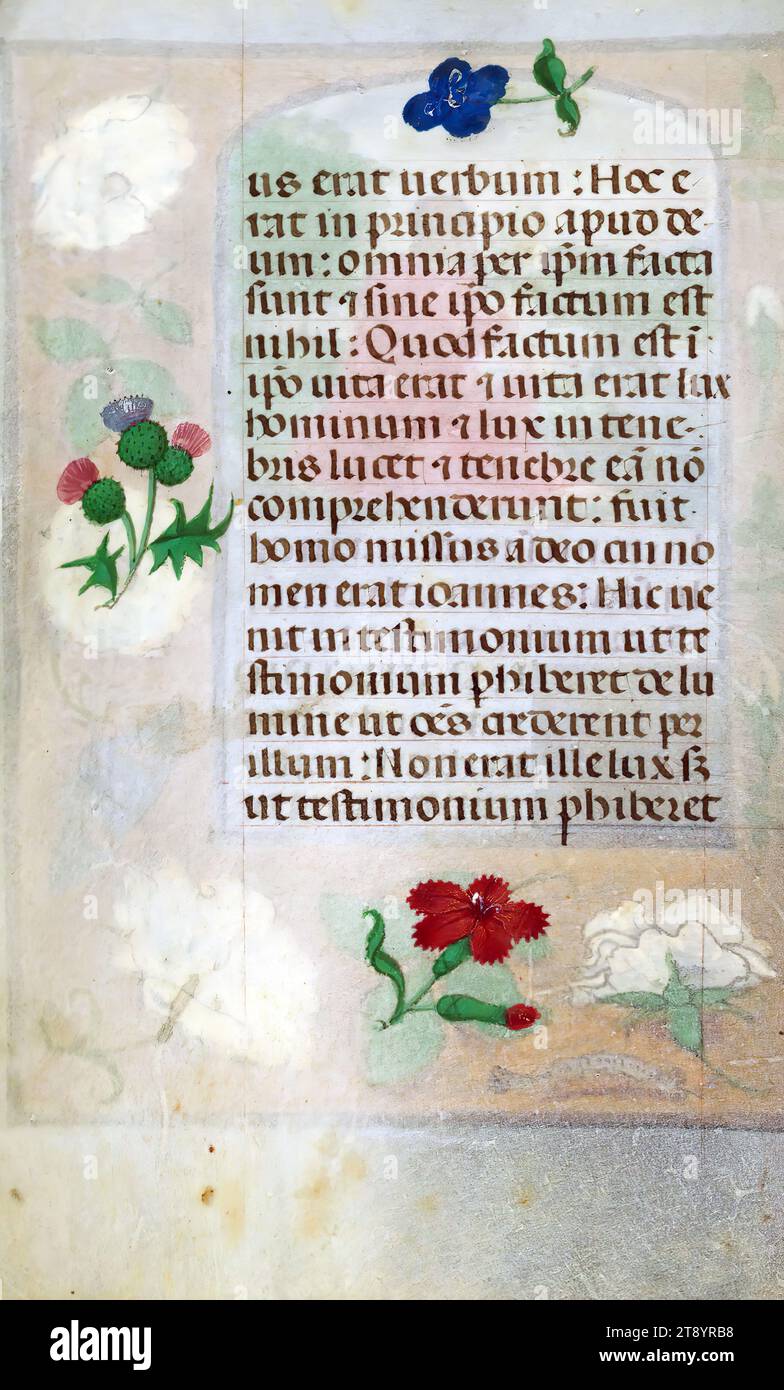 us erat uerbum : Hoc e
rat in principio apud de-
um : omnia per ip̄m facta
sunt ⁊ sine ip̄o factum est
nihil : Quod factum est ī-
ip̄o uita erat ⁊ uita erat lux
hominum ⁊ lux in tene-
bris lucet ⁊ tenebre eā nō
comprehenderunt : fuit-
homo missus a deo cui no
men erat ioannes : Hic ue
nit in testimonium ut te
stimonium phiberet de lu
mine ut oēs crederent per
illum : Non erat ille lux sꝫ
ut testimonium phiberet
alamy
Image ID: 2T8YRB8
www.alamy.com